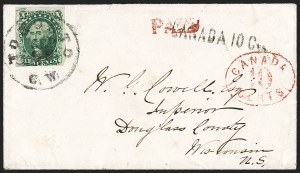 TORONTO
C.W.
PAID
CANADA 10 C
CANADA
CENTS
W. G. Cowell, Esq
Superior
Douglass County
Wisconsin
U.S.